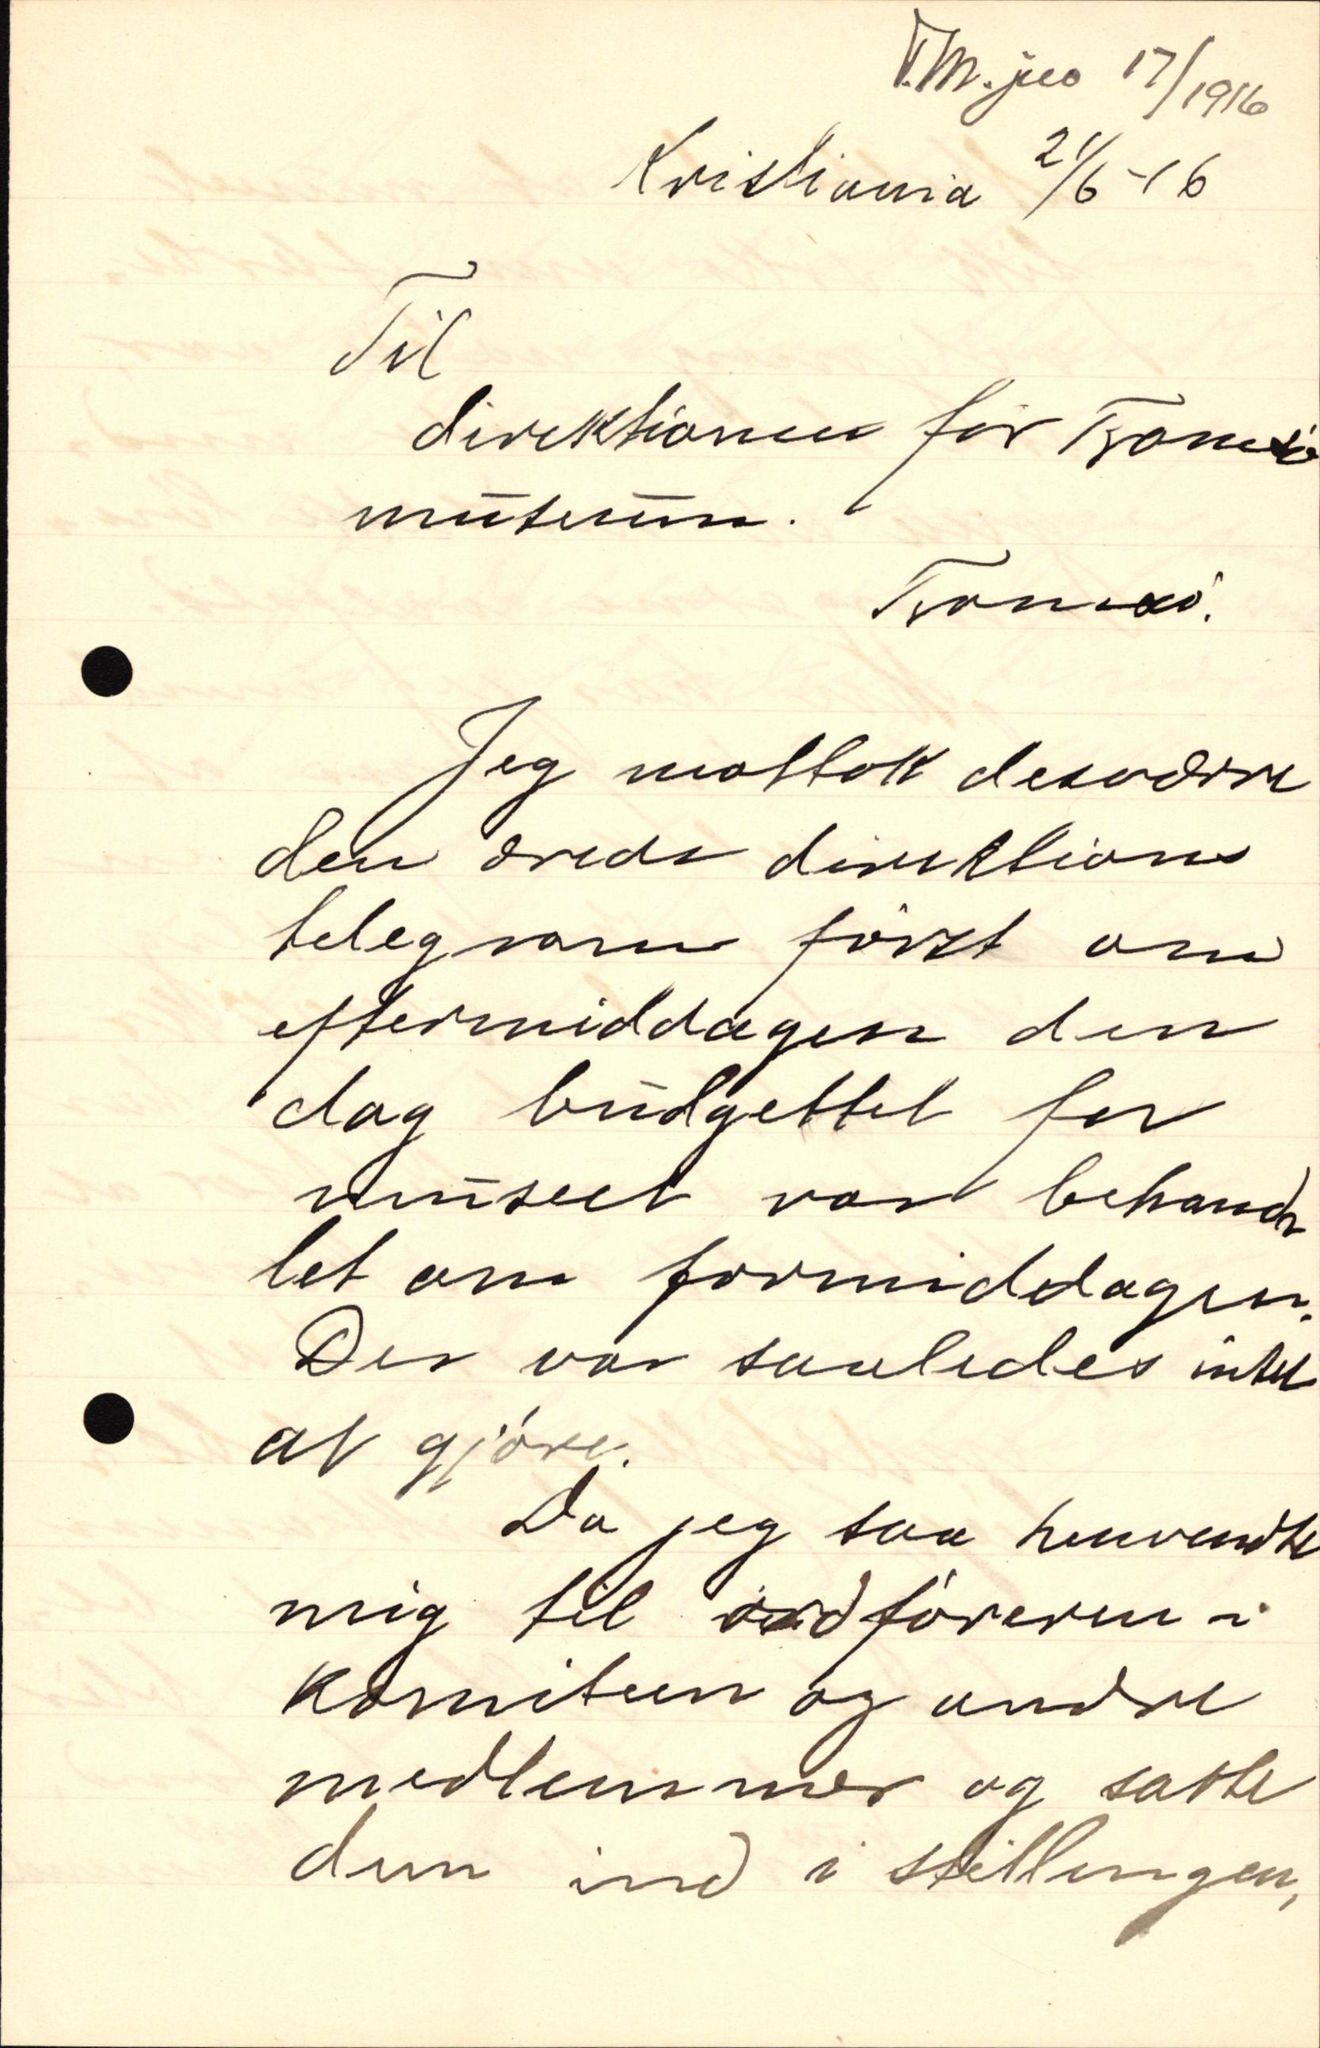 T.M. jno 17/1916
Kristiania 21/6-16
Til
direktionen for Tromsö
museum.
Tromsö.
Jeg mottok desværre
den ærede direktions
telegram først om
eftermiddagen den
dag budgettet for
museet var behand
let om formiddagen.
Der var saaledes intet
at gjöre.
Da jeg saa henvendte
mig til ordföreren i
komiteen og andre
medlemmer og satte
dem ind i stillingen,